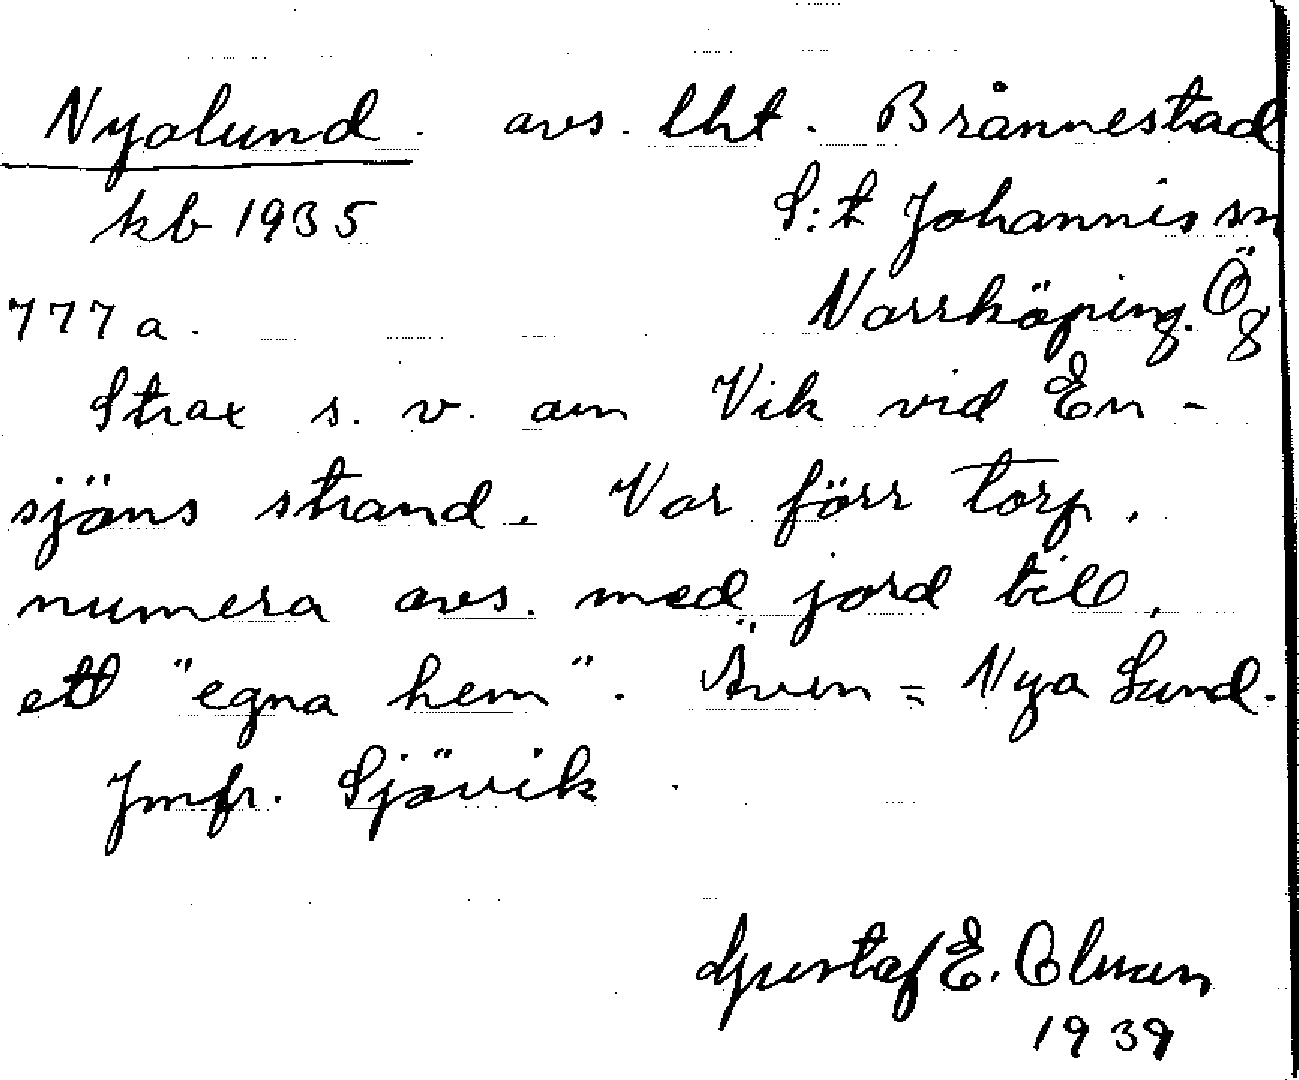 Nyalund. avs. lht. Brånnestad
kb 1935 S:t Johannis sn
777a. Norrköping. Ög
Strax s. v. om Vik vid En-
sjöns strand. Var förr torp.
numera avs. med jord till,
ett "egna hem". Även = Nya Lund.
Jmfr. Sjövik.
Gustaf E.
1939